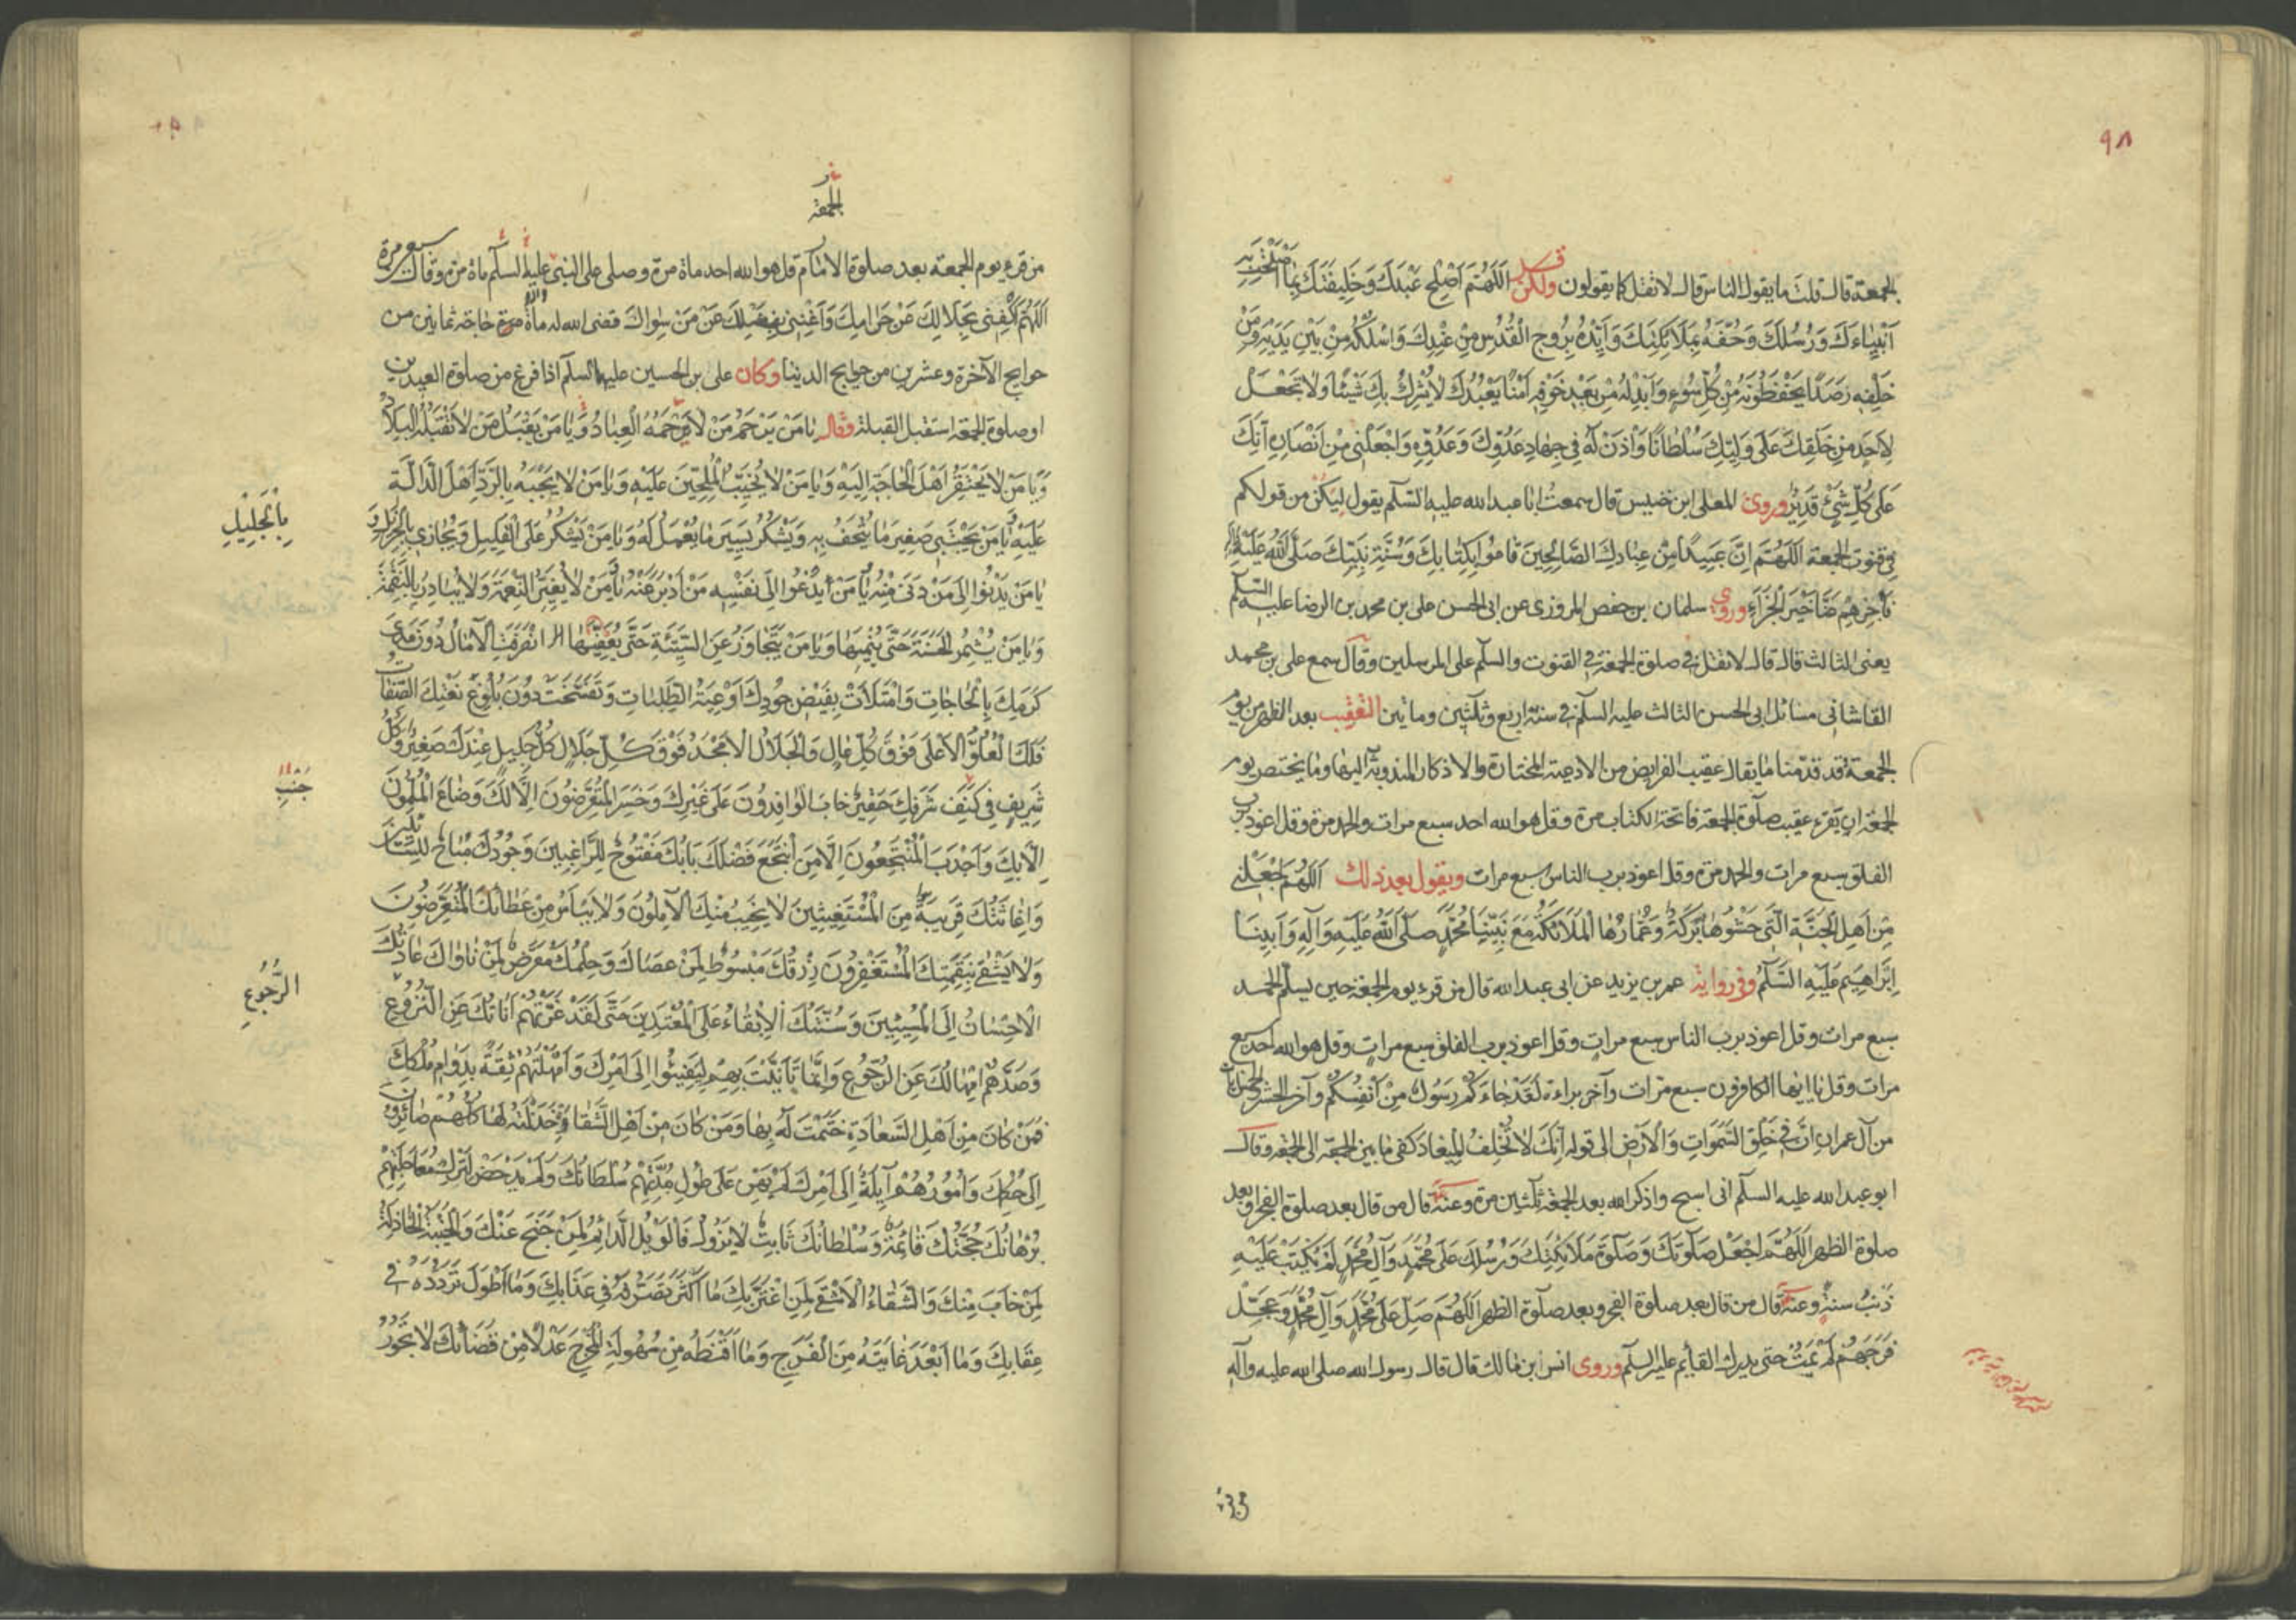 ٩٨
الجمعة قال قلت ما يقول الناس قال لا تقل كما يقولون ولكن قل اَللّهُمَّ اَصْلِحْ عَبْدَكَ وَخَلِيفَتَكَ بِمَا اَصْلَحْتَ بِهِ
اَنْبِيَاءَكَ وَرُسُلَكَ وَحُفَّهُ بِمَلَائِكَتِكَ وَاَيِّدْهُ بِرُوحِ الْقُدُسِ مِنْ عِنْدِكَ وَاسْلُكْهُ مِنْ بَيْنِ يَدَيْهِ وَمِنْ
خَلْفِهِ رَصَدًا يَحْفَظُونَهُ مِنْ كُلِّ سُوءٍ وَاَبْدِلْهُ مِنْ بَعْدِ خَوْفِهِ اَمْنًا يَعْبُدُكَ لَا يُشْرِكُ بِكَ شَيْئًا وَلَا تَجْعَلْ
لِاَحَدٍ مِنْ خَلْقِكَ عَلَى وَلِيِّكَ سُلْطَانًا وَأْذَنْ لَهُ فِي جِهَادِ عَدُوِّكَ وَعَدُوِّهِ وَاجْعَلْنِي مِنْ اَنْصَارِهِ اِنَّكَ
عَلَى كُلِّ شَيْءٍ قَدِيرٌ وروى المعلى ابن خنيس قال سمعت ابا عبد الله عليه السلم يقول ليكن من قولكم
في قنوت الجمعة اَللّهُمَّ اِنَّ عَبِيدًا مِنْ عِبَادِكَ الصَّالِحِينَ قَامُوا بِكِتَابِكَ وَسُنَّةِ نَبِيِّكَ صَلَّى اللهُ عَلَيْهِ وَآلِهِ
فَاجْزِهِمْ عَنَّا خَيْرَ الْجَزَاءِ وروى سلمان بن حفص المروزي عن ابى الحسن على بن محمد بن الرضا عليه السلم
يعنى الثالث قال قال لا تقل في صلوة الجمعة في القنوت والسلم على المرسلين وقال سمع على بن محمد
القاشانى مسائل ابى الحسن الثالث عليه السلم في سنة اربع وثلثين ومائتين التعقيب بعد الظهر من يوم
الجمعة قد قدمنا ما يقال عقيب الفرايض من الادعية المختارة والاذكار المندوبة اليها وما يختص يوم
الجمعة ان يقرء عقيب صلوة الجمعة فاتحة الكتاب مرة وقل هو الله احد سبع مرات والحمد مرة وقل اعوذ برب
الفلق سبع مرات والحمد مرة وقل اعوذ برب الناس سبع مرات ويقول بعد ذلك اَللّهُمَّ اجْعَلْنِي
مِنْ اَهْلِ الْجَنَّةِ الَّتِي حَشْوُهَا بَرَكَةٌ وَعُمَّارُهَا الْمَلَائِكَةُ مَعَ نَبِيِّنَا مُحَمَّدٍ صَلَّى اللهُ عَلَيْهِ وَآلِهِ وَاَبِينَا
اِبْرَاهِيمَ عَلَيْهِ السَّلَمُ وفى رواية عمر بن يزيد عن ابى عبد الله قال من قرء يوم الجمعة حين يسلم الحمد
سبع مرات وقل اعوذ برب الناس سبع مرات وقل اعوذ برب الفلق سبع مرات وقل هو الله احد سبع
مرات وقل يا ايها الكافرون سبع مرات وآخر براءة لَقَدْ جَاءَكُمْ رَسُولٌ مِنْ اَنْفُسِكُمْ وآخر الحشر والخمس آيات
من آل عمران اِنَّ فِي خَلْقِ السَّمَوَاتِ وَالْاَرْضِ الى قوله اِنَّكَ لَا تُخْلِفُ الْمِيعَادَ كفى ما بين الجمعة الى الجمعة وقال
ابو عبد الله عليه السلم انى اسبح واذكر الله بعد الجمعة ثلثين مرة وعنه قال من قال بعد صلوة الفجر او بعد
صلوة الظهر اَللّهُمَّ اجْعَلْ صَلَوتَكَ وَصَلَوةَ مَلَائِكَتِكَ وَرُسُلِكَ عَلَى مُحَمَّدٍ وَآلِ مُحَمَّدٍ لَمْ يُكْتَبْ عَلَيْهِ
ذَنْبُ سنةٍ وعنه قال من قال بعد صلوة الفجر وبعد صلوة الظهر اَللّهُمَّ صَلِّ عَلَى مُحَمَّدٍ وَآلِ مُحَمَّدٍ وَعَجِّلْ
فَرَجَهُمْ لَمْ يَمُتْ حتى يدرك القائم عليه السلم وروى انس ابن مالك قال قال رسول الله صلى الله عليه وآله
من قرء
الجمعة
من قرء يوم الجمعة بعد صلوة الامام قل هو الله احد ماة مرة وصلى على النبى عليه السلم ماة مرة وقال سبع مرة
اَللّهُمَّ اكْفِنِي بِحَلَالِكَ عَنْ حَرَامِكَ وَاَغْنِنِي بِفَضْلِكَ عَنْ مَنْ سِوَاكَ قضى الله له ماة حاجة ثمانين من
حوايج الآخرة وعشرين من حوايج الدنيا وكان على بن الحسين عليهما السلم اذا فرغ من صلوة العيدين
او صلوة الجمعة استقبل القبلة فقال يَا مَنْ يَرْحَمُ مَنْ لَا يَرْحَمُهُ الْعِبَادُ وَيَا مَنْ يَقْبَلُ مَنْ لَا تَقْبَلُهُ الْبِلَادُ
وَيَا مَنْ لَا يَحْتَقِرُ اَهْلَ الْحَاجَةِ اِلَيْهِ وَيَا مَنْ لَا يُخَيِّبُ الْمُلِحِّينَ عَلَيْهِ وَيَا مَنْ لَا يَجْبَهُ بِالرَّدِّ اَهْلَ الدَّالَّةِ
عَلَيْهِ يَا مَنْ يَجْتَبِي صَغِيرَ مَا يُتْحَفُ بِهِ وَيَشْكُرُ يَسِيرَ مَا يُعْمَلُ لَهُ وَيَا مَنْ يَشْكُرُ عَلَى الْقَلِيلِ وَيُجَازِي بِالْجَزِيلِ وَ
بِالْجَلِيلِ
يَا مَنْ يَدْنُوا اِلَى مَنْ دَنَى مِنْهُ يَا مَنْ يَدْعُوا اِلَى نَفْسِهِ مَنْ اَدْبَرَ عَنْهُ يَا مَنْ لَا يُغَيِّرُ النِّعْمَةَ وَلَا يُبَادِرُ بِالنَّقِمَةِ
وَيَا مَنْ يُثْمِرُ الْحَسَنَةَ حَتَّى يُنْمِيَهَا وَيَا مَنْ يَتَجَاوَزُ عَنِ السَّيِّئَةِ حَتَّى يُعَفِّيَهَا انْصَرَفَتِ الْآمَالُ دُونَ مَدَى
كَرَمِكَ بِالْحَاجَاتِ وَامْتَلَأَتْ بِفَيْضِ جُودِكَ اَوْعِيَةُ الطَّلِبَاتِ وَتَفَسَّخَتْ دُونَ بُلُوغِ نَعْتِكَ الصِّفَاتُ
فَلَكَ الْعُلُوُّ الْاَعْلَى فَوْقَ كُلِّ عَالٍ وَالْجَلَالُ الْاَمْجَدُ فَوْقَ كُلِّ جَلَالٍ كُلُّ جَلِيلٍ عِنْدَكَ صَغِيرٌ وَكُلُّ
شَرِيفٍ فِي كَنَفِ شَرَفِكَ حَقِيرٌ خَابَ الْوَافِدُونَ عَلَى غَيْرِكَ وَخَسِرَ الْمُتَعَرِّضُونَ اِلَّا لَكَ وَضَاعَ الْمُلِمُّونَ
جَنْبِ
اِلَّا بِكَ وَاَجْدَبَ الْمُنْتَجِعُونَ اِلَّا مَنِ انْتَجَعَ فَضْلَكَ بَابُكَ مَفْتُوحٌ لِلرَّاغِبِينَ وَجُودُكَ مُبَاحٌ لِلسَّائِلِينَ
وَاِغَاثَتُكَ قَرِيبَةٌ مِنَ الْمُسْتَغِيثِينَ لَا يَخِيبُ مِنْكَ الْآمِلُونَ وَلَا يَيْأَسُ مِنْ عَطَائِكَ الْمُتَعَرِّضُونَ
وَلَا يَشْقَى بِنَقِمَتِكَ الْمُسْتَغْفِرُونَ رِزْقُكَ مَبْسُوطٌ لِمَنْ عَصَاكَ وَحِلْمُكَ مُعْرِضٌ لِمَنْ نَاوَاكَ عَادَتُكَ
الْاِحْسَانُ اِلَى الْمُسِيئِينَ وَسُنَّتُكَ الْاِبْقَاءُ عَلَى الْمُعْتَدِينَ حَتَّى لَقَدْ غَرَّتْهُمْ اَنَاتُكَ عَنِ النُّزُوعِ
الرُّجُوعِ
وَصَدَّهُمْ اِمْهَالُكَ عَنِ الرُّجُوعِ وَاِنَّمَا تَأَنَّيْتَ بِهِمْ لِيَفِيئُوا اِلَى اَمْرِكَ وَاَمْهَلْتَهُمْ ثِقَةً بِدَوَامِ مُلْكِكَ
فَمَنْ كَانَ مِنْ اَهْلِ السَّعَادَةِ خَتَمْتَ لَهُ بِهَا وَمَنْ كَانَ مِنْ اَهْلِ الشَّقَاوَةِ خَذَلْتَهُ لَهَا كُلُّهُمْ صَائِرُونَ
اِلَى حُكْمِكَ وَاُمُورُهُمْ آيِلَةٌ اِلَى اَمْرِكَ لَمْ يَهِنْ عَلَى طُولِ مُدَّتِهِمْ سُلْطَانُكَ وَلَمْ يَدْحَضْ لِتَرْكِ مُعَاجَلَتِهِمْ
بُرْهَانُكَ حُجَّتُكَ قَائِمَةٌ وَسُلْطَانُكَ ثَابِتٌ لَا يَزُولُ فَالْوَيْلُ الدَّائِمُ لِمَنْ جَنَحَ عَنْكَ وَالْخَيْبَةُ الْخَاذِلَةُ
لِمَنْ خَابَ مِنْكَ وَالشَّقَاءُ الْاَشْقَى لِمَنِ اغْتَرَّ بِكَ مَا اَكْثَرَ تَصَرُّفَهُ فِي عَذَابِكَ وَمَا اَطْوَلَ تَرَدُّدَهُ فِي
عِقَابِكَ وَمَا اَبْعَدَ غَايَتَهُ مِنَ الْفَرَجِ وَمَا اَقْنَطَهُ مِنْ سُهُولَةِ الْمَخْرَجِ عَدْلًا مِنْ قَضَائِكَ لَا تَجُورُ